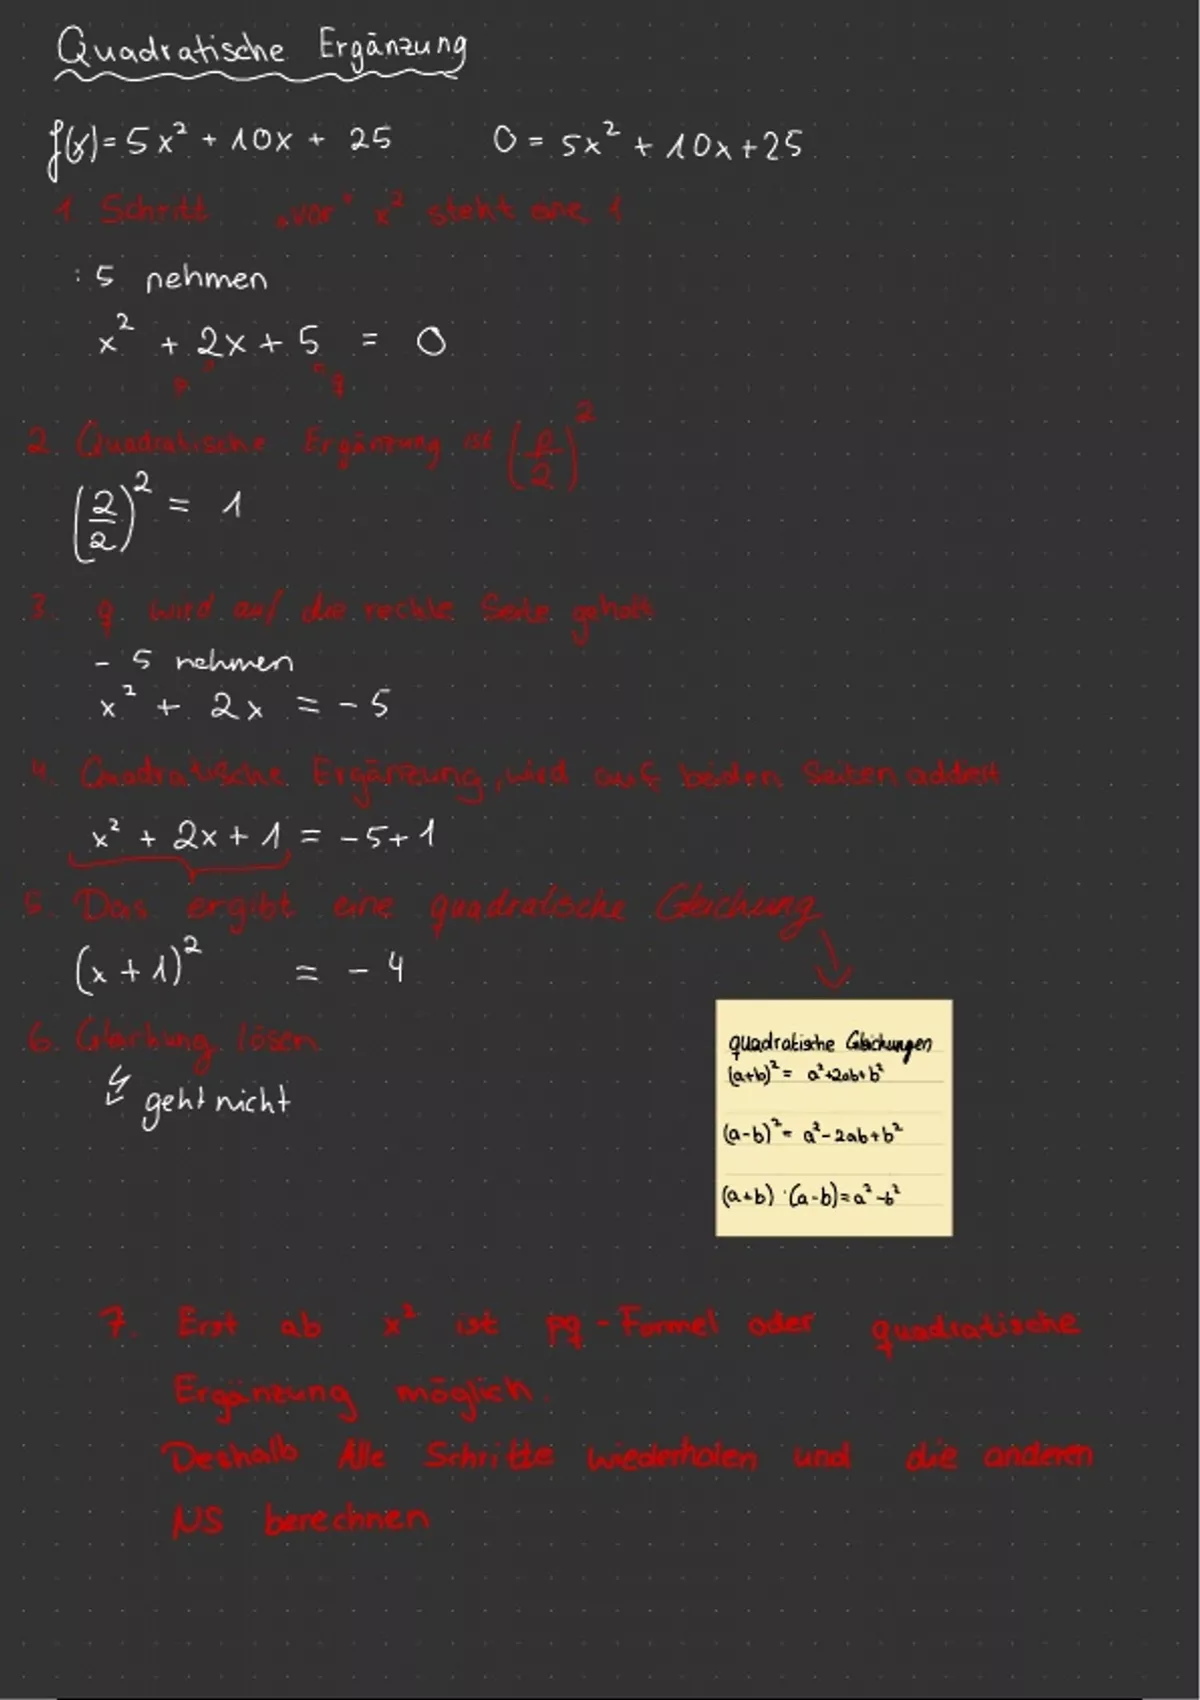 Quadratische Ergänzung
f(x) = 5x² + 10x + 25 0 = 5x² + 10x + 25
1 Schritt „vor" x² steht eine 1
: 5 nehmen
x² + 2x + 5 = 0
p q
2. Quadratische Ergänzung ist (p/2)²
(2/2)² = 1
3. q wird auf die rechte Seite geholt
- 5 nehmen
x² + 2x = - 5
4. Quadratische Ergänzung, wird auf beiden Seiten addiert
x² + 2x + 1 = - 5 + 1
5. Das ergibt eine quadratische Gleichung
(x + 1)² = - 4
6. Gleichung lösen
↯ geht nicht
quadratische Gleichungen
(a+b)² = a²+2ab+b²
(a-b)² = a²-2ab+b²
(a+b) · (a-b) = a²-b²
7. Erst ab x² ist pq-Formel oder quadratische
Ergänzung möglich.
Deshalb Alle Schritte wiederholen und die anderen
NS berechnen